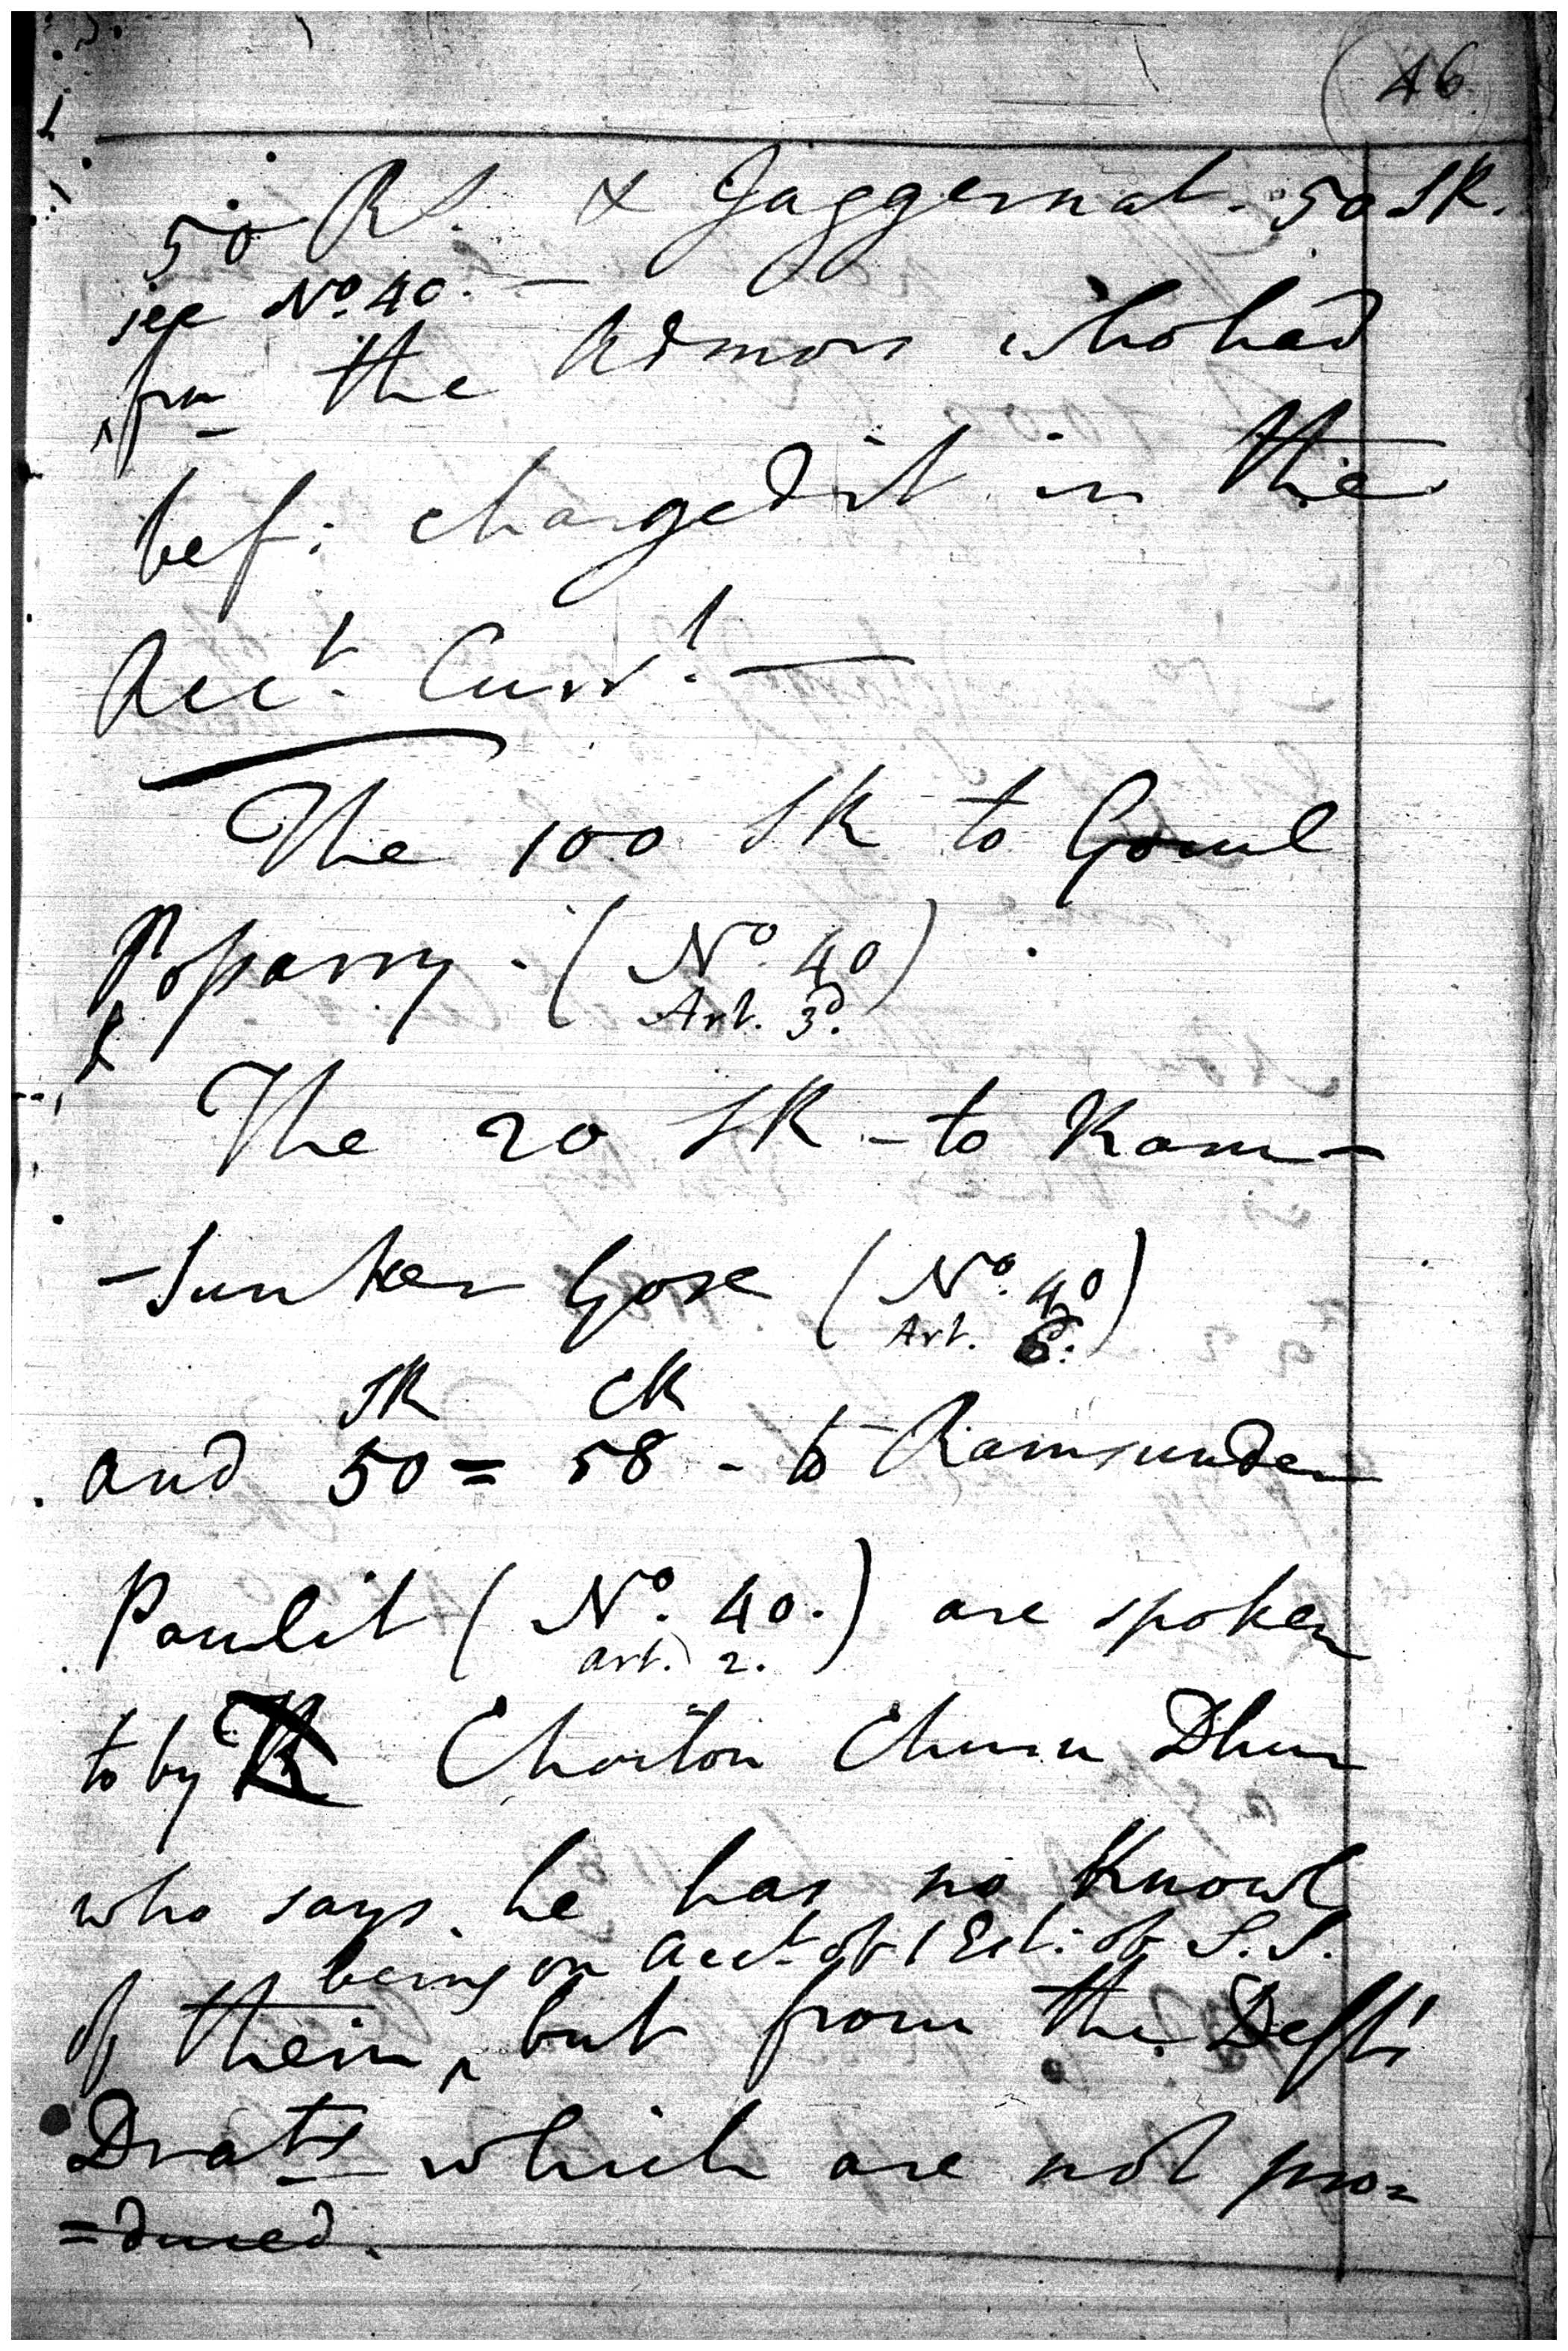 46
50 Rs. & Jaggernat - 50 SR.
see No. 40. —
from the Admors who had
bef: charged it in the
Acct. Currt. —
The 100 SR to
(No. 40)
Art. 3d.
The 20 SR - to Ram-
-Sunker Gose (No. 40)
Art. 6.
SR CR
and 50 = 58 - to Ramsunder
Paulit (No. 40.) are spoken
art. 2.
to by Choiton Churn Dhur
who says he has no Knowl
being on acct of Est: of S.S.
of them ^ but from the Defts
Drafts which are not pro=
=duced.